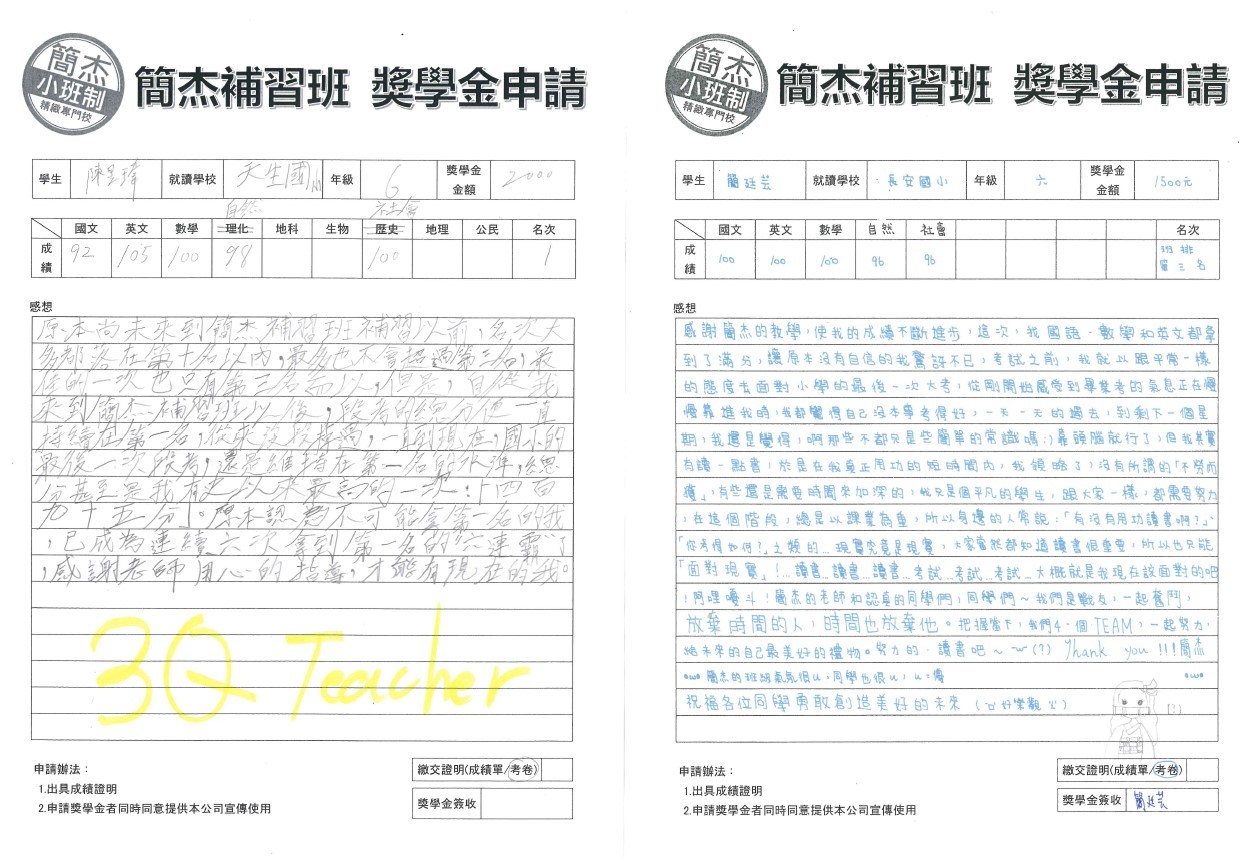 簡杰
小班制
精緻專門校
簡杰補習班 獎學金申請
學生 陳呈瑋 就讀學校 天生國小 年級 6 獎學金金額 2000
自然 社會
國文 英文 數學 理化 地科 生物 歷史 地理 公民 名次
成績 92 105 100 98 100 1
感想
原本尚未來到簡杰補習班補習以前,名次大
多都落在第十名以內,最多也不會超過第三名,最
佳的一次也只有第三名而以,但是,自從我
來到簡杰補習班以後,段考的總分便一直
持續在第一名,從來沒段掉過,一直到現在,國小的
最後一次段考,還是維持在第一名的水準,總
分甚至是我有史以來最高的一次:「四百
九十五分」。原本認為不可能拿第一名的我
,已成為連續六次拿到第一名的"六連霸"了
,感謝老師用心的指導,才能有現在的我。
3Q Teacher
申請辦法:
1.出具成績證明
2.申請獎學金者同時同意提供本公司宣傳使用
繳交證明(成績單/考卷)
獎學金簽收
簡杰
小班制
精緻專門校
簡杰補習班 獎學金申請
學生 簡廷芸 就讀學校 長安國小 年級 六 獎學金金額 1500元
國文 英文 數學 自然 社會 名次
成績 100 100 100 96 96 班排第三名
感想
感謝簡杰的教學,使我的成績不斷進步,這次,我國語、數學和英文都拿
到了滿分,讓原本沒有自信的我驚訝不已,考試之前,我就以跟平常一樣
的態度去面對小學的最後一次大考,從剛開始感受到畢業考的氣息正在慢
慢靠進我時,我都覺得自己沒本事考得好,一天一天的過去,到剩下一個星
期,我還是覺得,啊那些不都只是些簡單的常識嗎:)靠頭腦就行了,但我其實
有讀一點書,於是在我真正用功的短時間內,我領略了,沒有所謂的「不勞而
獲」,有些還是需要時間來加深的,我只是個平凡的學生,跟大家一樣,都需要努力
,在這個階段,總是以課業為重,所以身邊的人常說:「有沒有用功讀書啊?」、
「你考得如何?」之類的...現實究竟是現實,大家當然都知道讀書很重要,所以也只能
「面對現實」!...讀書...讀書...讀書...考試...考試...考試...大概就是我現在該面對的吧
!阿哩嘎斗!簡杰的老師和認真的同學們,同學們~我們是戰友,一起奮鬥,
放棄時間的人,時間也放棄他。把握當下,我們是個TEAM,一起努力,
給未來的自己最美好的禮物。努力的、讀書吧~ (?) Thank you !!!簡杰
簡杰的班級氣氛很u,同學也很u,u=優
祝福各位同學勇敢創造美好的未來
申請辦法:
1.出具成績證明
2.申請獎學金者同時同意提供本公司宣傳使用
繳交證明(成績單/考卷)
獎學金簽收 簡廷芸